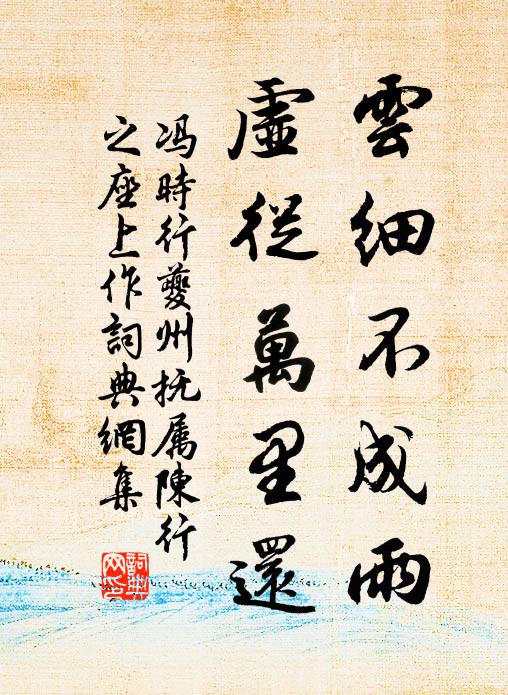 雲細不成雨
虛從萬里還
馮時行夔州抚属陳行
之座上作詞典網集